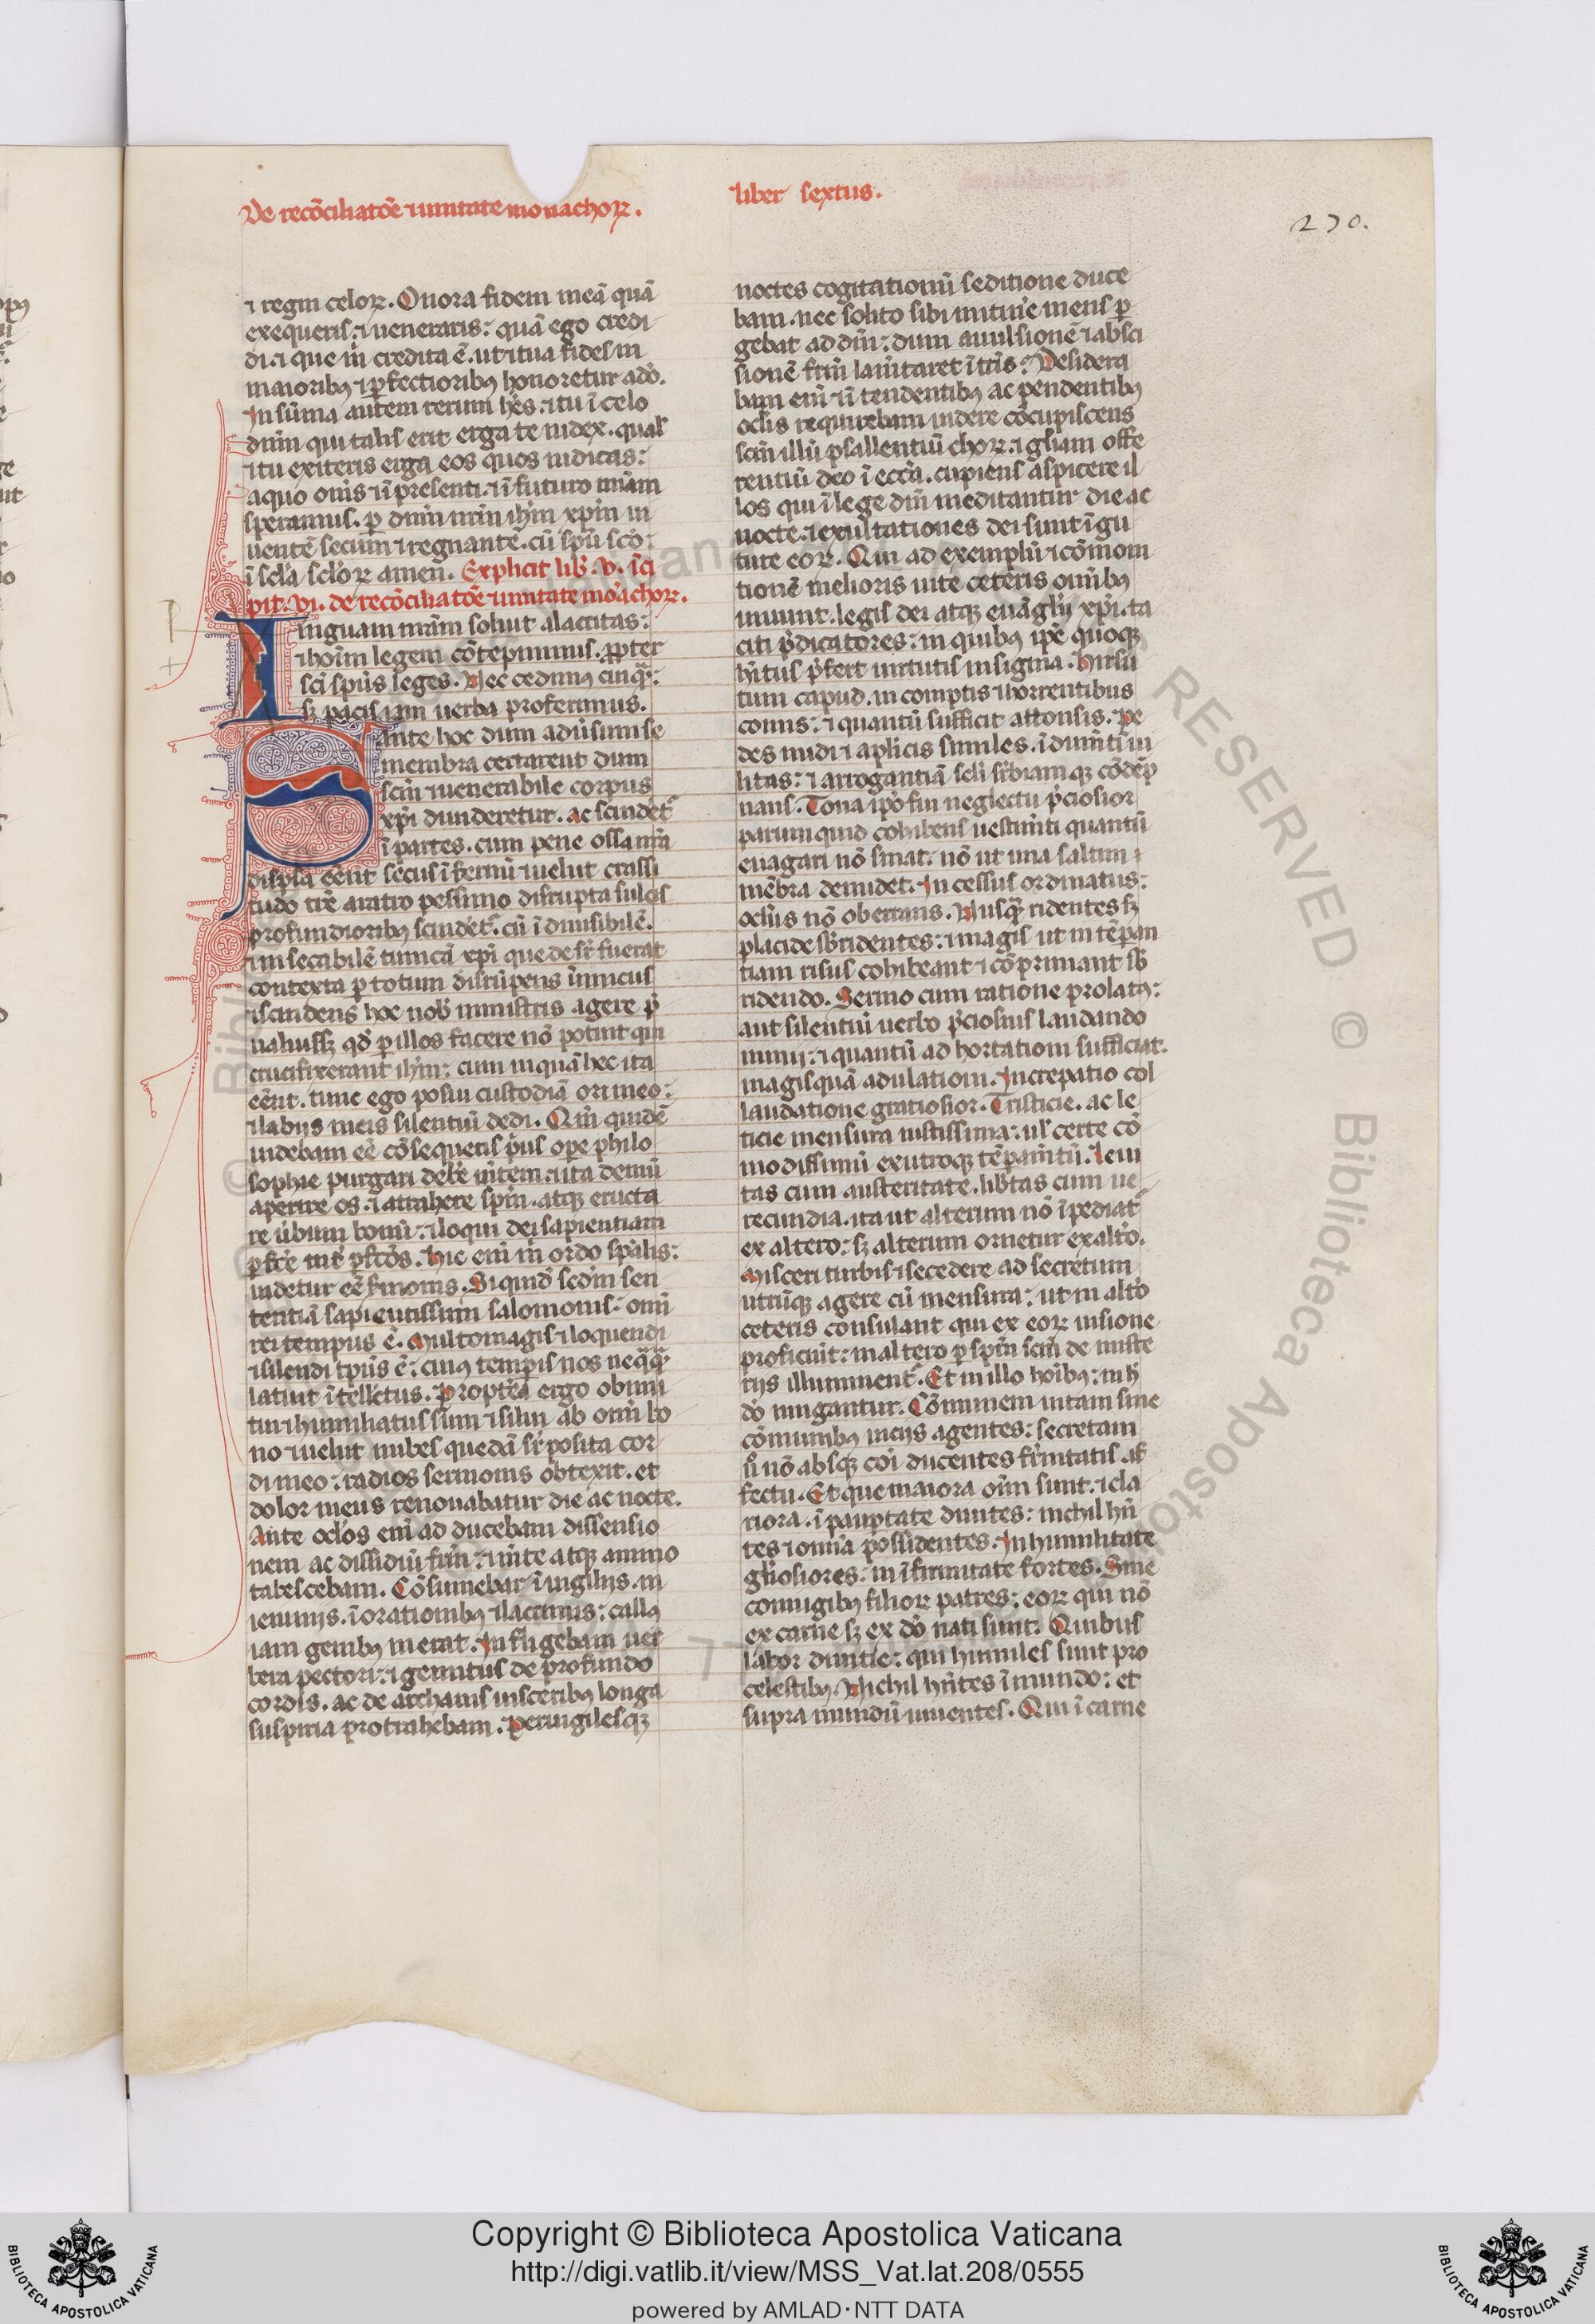 De recōciliatōe ⁊ unitate monachoꝝ.
liber sextus.
270.
⁊ regni celoꝝ. Onora fidem meā quā
exequeris: ⁊ ueneraris: quā ego credi
di. ⁊ que in credita ē. ut ⁊ tua fides in
maioribꝰ ⁊ ꝑfectioribꝰ honoretur a do.
In sūma autem rerum hēs. ⁊ tu ī celo
dnm qui talis erit erga te iudex. qual
⁊ tu exiteris erga eos quos iudicas:
a quo onis ⁊ ī presenti. ⁊ ī futuro
speramus. ꝑ dnm nrm ihm xpm ui
uentē secum ⁊ regnantē. cū spū sco:
ī scla scloꝝ amen. Explicit lib. v. īci
pit. vi. de recōciliatōe ⁊ unitate monachoꝝ.
Linguam mām soluit alacritas:
⁊ hoīm legem cōtepnimus. ꝓpter
sci spūs leges. Nec cedimus
sꝫ pacis iam uerba proferimus.
Ante hoc dum aduersum se
membra certarent dum
scm ⁊ uenerabile corpus
xpi diuideretur. ac scindet
ī partes. cum pene ossa nra
dispsa eent secus īfernū ⁊ uelut crassi
tudo tre aratro pessimo disrupta sulcis
profundioribꝰ scindet. cū ī diuisibilē.
⁊ insecabilē tunicā xpi que desr fuerat
contexta ꝑ totum disrūpens inimicus
⁊ scindens hoc nob ministris agere p
ualuiss; qd ꝑ illos facere nō potuit qui
crucifixerant ihm: cum inquā hec ita
eent. tunc ego posui custodiā ori meo:
⁊ labijs meis silentiū dedi. Qm quidē
uidebam ee cōsequens prius ope philo
sophie purgari debe mtem: ⁊ ita demū
aperire os. ⁊ attrahere spm. atqꝫ eructa
re ubum bonū: ⁊ loqui dei sapientiam
ꝑfce int ꝑfcos. Hic eni in ordo spalis:
uidetur ee smonis. Siquid scdm sen
tentiā sapientissimi salomonis: omi
rei tempus ē. Multomagis ⁊ loquendi
⁊ silendi tpus ē: cuiꝰ tempis nos neqqꝫ
latuit ītellctus. Propterea ergo obmu
tui ⁊ humiliatus sum ⁊ silui ab omi bo
no ⁊ uelut nubes quedā sr posita cor
di meo: radios sermonis obtexit. et
dolor meus renouabatur die ac nocte.
Ante oclos eni ad ducebam dissensio
nem ac dissidiū frm: ⁊ mte atqꝫ animo
tabescebam. Cōsumebar ī uigilijs. in
ieiunijs. ī orationibꝰ ⁊ lacrimis: callꝰ
iam genibꝰ inerat. Infligebam uer
bera pectori: ⁊ gemitus de profundo
cordis. ac de archanis uisceribꝰ longa
suspiria protrahebam. Peruigilesqꝫ
noctes cogitationū seditione duce
bam. nec solito sibi mens ꝑ
gebat ad dm: dum auulsionē ⁊ absci
sionē frm ītris: Desidera
bam eni ⁊ ītendentibꝰ ac pendentibꝰ
oclis requirebam uidere cōcupiscens
scm illū psallentiū choꝝ. ⁊ gliam offe
rentiū deo ī eccla. cupiens aspicere il
los qui ī lege dni meditantur die ac
nocte. ⁊ exultationes dei sunt ī gu
ture eoꝝ. Qui ad exemplū ⁊ cōmoni
tionē melioris uite ceteris omibꝰ
uiuunt. legis dei atqꝫ euāglij xpi. ta
citi pdicatores: in quibꝰ ipe quoqꝫ
hitus pfert uirtutis insignia. Hirsu
tum capud. in comptis ⁊ horrentibus
comis: ⁊ quantū sufficit attonsis. Pe
des nudi ⁊ aplicis similes. ī
litas: ⁊ arrogantiā scli srbiamqꝫ cōdēp
nans. Zona ipo sui neglectu pciosior
parum quid cohibens uestmti quantū
euagari nō sinat. nō ut una saltim
mēbra denudet. Incessus ordinatus:
oclus nō oberrans. Nusqꝫ ridentes sꝫ
placide sbridentes: ⁊ magis ut intēpan
tiam risus cohibeant ⁊ cōprimant sb
ridendo. Sermo cum ratione prolatꝰ:
aut silentiū uerbo pciosius laudando
nimij: ⁊ quantū ad hortationi sufficiat.
magisquā adulationi. Increpatio col
laudatione gratiosior. Tristicie. ac le
ticie mensura iustissima: ul certe cō
modissimū ex utroqꝫ tēpamtū. Leni
tas cum austeritate. libtas cum ue
recundia. ita ut alterum nō īpediat
ex altero: sꝫ alterum ornetur ex alto.
Misceri turbis ⁊ secedere ad secretum
utrūqꝫ agere cū mensura: ut in alto
ceteris consulant qui ex eoꝝ uisione
proficiūt: in altero ꝑ spm scm de miste
rijs illuminent. Et in illo hoibꝰ: in h
do iungantur. Cōmunem uitam sine
cōmunibꝰ uicijs agentes: secretam
u nō absqꝫ coi ducentes frnitatis. af
fectu. Et que maiora oim sunt: ⁊ cla
riora. ī pauptate diuites: nichil hn
tes ⁊ omia possidentes. In humilitate
gliosiores: in īfirmitate fortes. Sine
coniugibꝰ filioꝝ patres: eoꝝ qui nō
ex carne sꝫ ex do nati sunt. Quibus
labor diuitie: qui humiles sunt pro
celestibꝰ. Nichil hntes ī mundo: et
supra mundū uiuentes. Qui ī carne
Copyright © Biblioteca Apostolica Vaticana
http://digi.vatlib.it/view/MSS_Vat.lat.208/0555
powered by AMLAD·NTT DATA
BIBLIOTECA APOSTOLICA VATICANA
BIBLIOTECA APOSTOLICA VATICANA